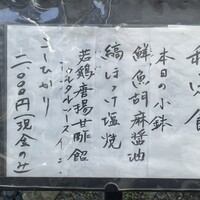 食
本日の小鉢
鮮魚胡麻醤油
縞ほっけ塩焼
若鶏唐揚甘酢餡
タルタルソースイン
こしひかり
二、000円(現金のみ)